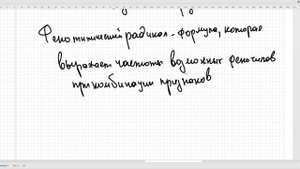 Фенотипический радикал - формула, которая
выражает частоты возможных фенотипов
при комбинации признаков